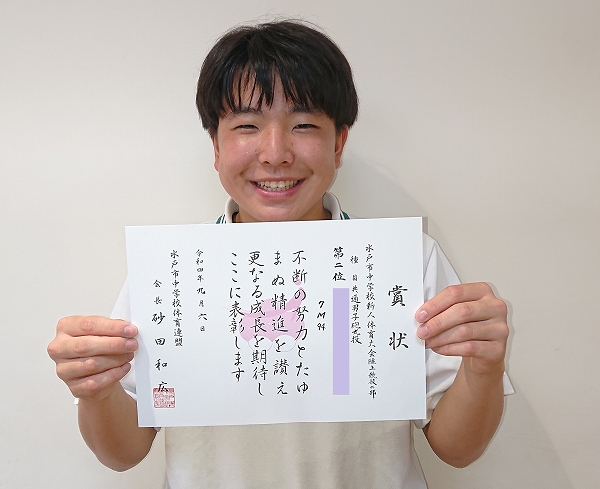 賞状
水戸市中学校新人体育大会陸上競技の部
種目 共通男子砲丸投
第二位
7M94
不断の努力とたゆ
まぬ精進を讃え
更なる成長を期待し
ここに表彰します
令和四年九月六日
水戸市中学校体育連盟
会長 砂田和広